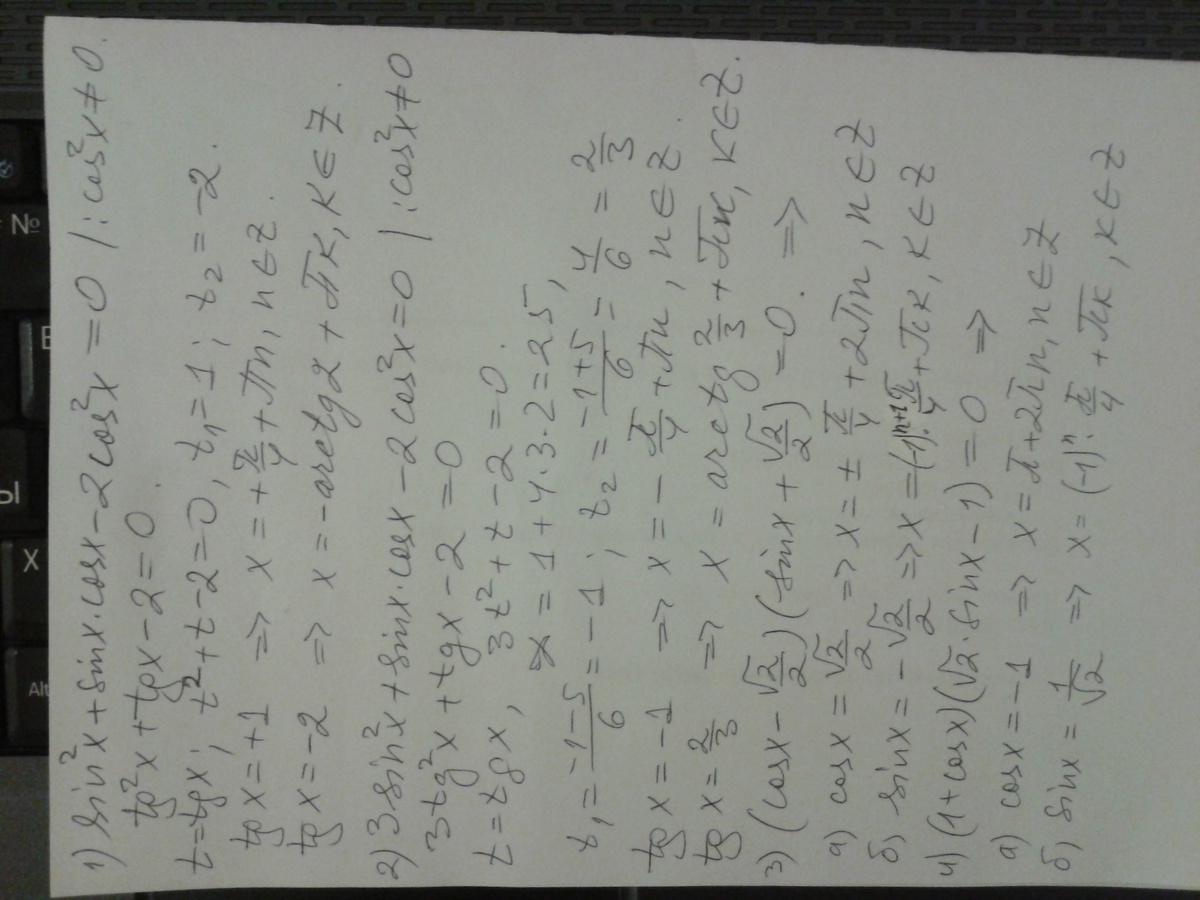 1) sin²x + sinx·cosx - 2cos²x = 0 | : cos²x ≠ 0.
tg²x + tgx - 2 = 0.
t = tgx; t² + t - 2 = 0, t₁ = 1; t₂ = -2.
tgx = +1 => x = + π/4 + πn, n ∈ Z.
tgx = -2 => x = -arctg2 + πк, к ∈ Z.
2) 3sin²x + sinx·cosx - 2cos²x = 0 | : cos²x ≠ 0
3tg²x + tgx - 2 = 0
t = tgx, 3t² + t - 2 = 0.
D = 1 + 4·3·2 = 25,
t₁ = (-1-5)/6 = -1; t₂ = (-1+5)/6 = 4/6 = 2/3
tgx = -1 => x = - π/4 + πn, n ∈ Z.
tgx = 2/3 => x = arctg 2/3 + πк, к ∈ Z.
3) (cosx - √2/2)(sinx + √2/2) = 0. =>
а) cosx = √2/2 => x = ± π/4 + 2πn, n ∈ Z
б) sinx = - √2/2 => x = (-1)ⁿ⁺¹·π/4 + πк, к ∈ Z
4) (1 + cosx)(√2·sinx - 1) = 0 =>
а) cosx = -1 => x = π + 2πn, n ∈ Z
б) sinx = 1/√2 => x = (-1)ⁿ·π/4 + πк, к ∈ Z
№
Ы
X
Alt